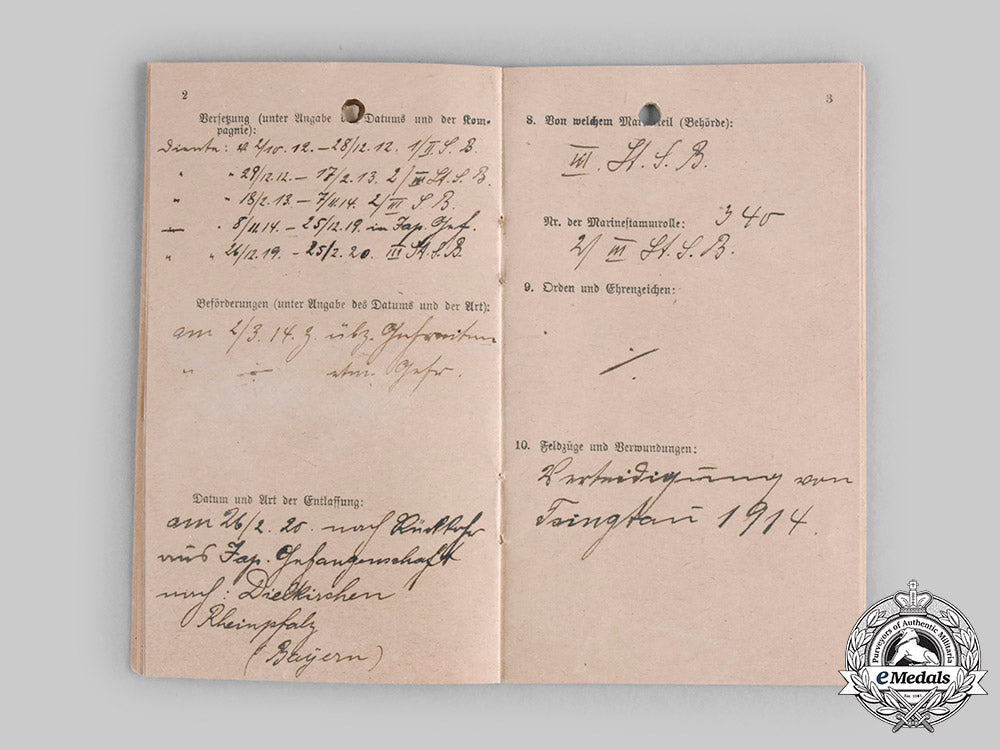 2
Versetzung (unter Angabe des Datums und der Kom-
pagnie):
Diente: v. 2/10. 12. – 28/12. 12. 1/II S. B.
" " 29/12.12. – 17/2. 13. 2/III St. S. B.
" " 18/2. 13. – 7/11.14. 2/III S. B.
" 8/11.14. – 25/12. 19. in Jap. Gef.
" " 26/12. 19. – 25/2. 20. III St. S. B.
Beförderungen (unter Angabe des Datums und der Art):
am 2/3. 14. z. übz. Gefreiten
" – " – etm. Gefr.
Datum und Art der Entlassung:
am 26/2. 20. nach Rückkehr
aus Jap. Gefangenschaft
nach: Dielkirchen
Rheinpfalz
(Bayern)
3
8. Von welchem Marineteil (Behörde):
III. St. S. B.
Nr. der Marinestammrolle: 340
2/ III St. S. B.
9. Orden und Ehrenzeichen:
10. Feldzüge und Verwundungen:
Verteidigung von
Tsingtau 1914.
Purveyors of Authentic Militaria
eMedals